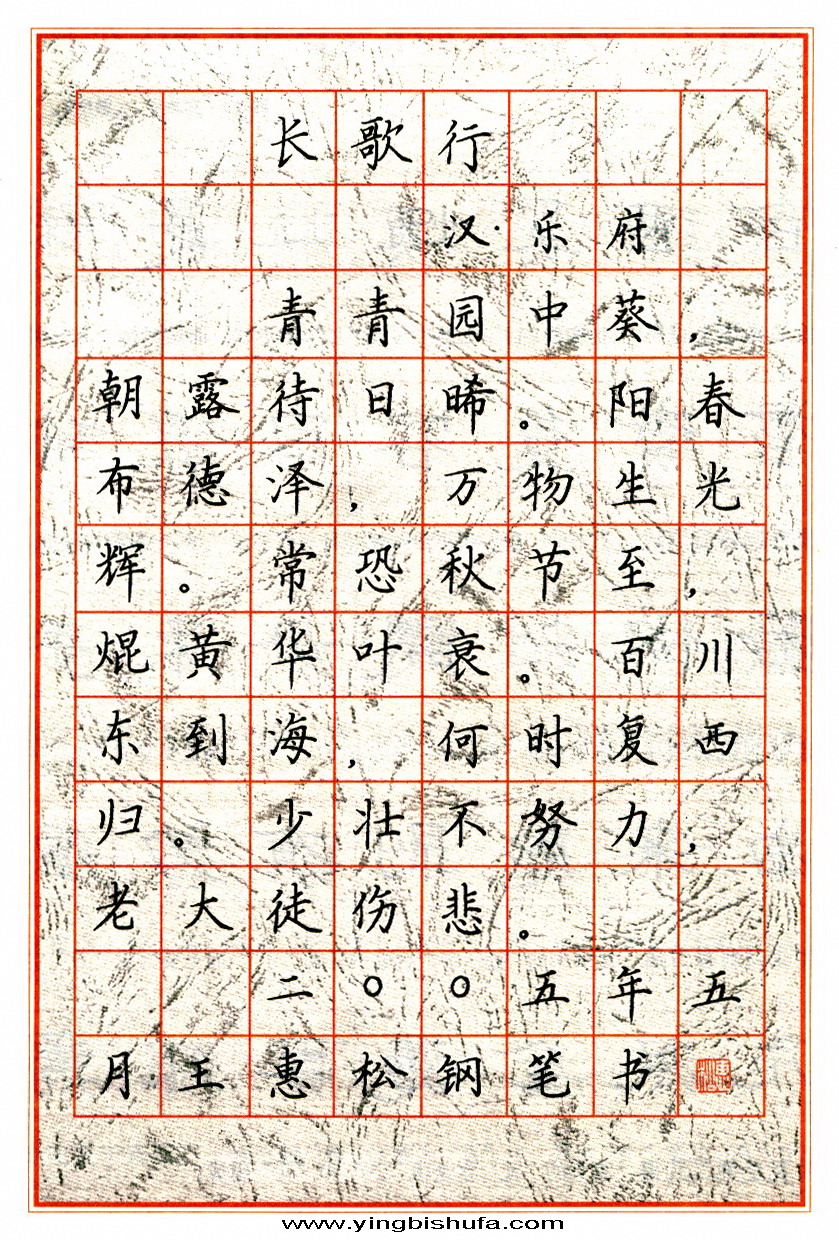 长歌行
汉·乐府
青青园中葵,
朝露待日晞。阳春
布德泽,万物生光
辉。常恐秋节至,
焜黄华叶衰。百川
东到海,何时复西
归。少壮不努力,
老大徒伤悲。
二〇〇五年五
月王惠松钢笔书
www.yingbishufa.com